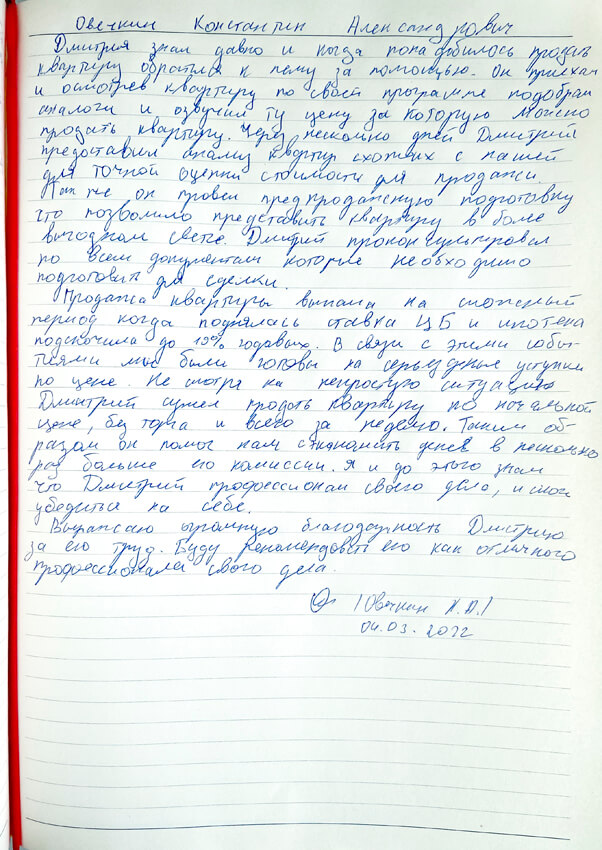 Овечкин Константин Александрович
Дмитрия знал давно и когда понадобилось продать
квартиру обратился к нему за помощью. Он приехал
и осмотрев квартиру по своей программе подобрал
аналоги и озвучил ту цену за которую можно
продать квартиру. Через несколько дней Дмитрий
предоставил анализ квартир схожих с нашей
для точной оценки стоимости для продажи
Так же он провел предпродажную подготовку
что позволило представить квартиру в более
выгодном свете. Дмитрий проконсультировал
по всем документам которые необходимо
подготовить для сделки.
Продажа квартиры выпала на сложный
период когда поднялась ставка ЦБ и ипотека
подскочила до годовых. В связи с этими собы-
тиями мы были готовы на серьезные уступки
по цене. Не смотря на непростую ситуацию
Дмитрий сумел продать квартиру по начальной
цене, без торга и всего за неделю. Таким об-
разом он помог нам сэкономить денег в несколько
раз больше его комиссии. Я и до этого знал
что Дмитрий профессионал своего дела, и смог
убедиться на себе.
Выражаю огромную благодарность Дмитрию
за его труд. Буду рекомендовать его как отличного
профессионала своего дела.
/Овечкин К.А./
04.03.2022